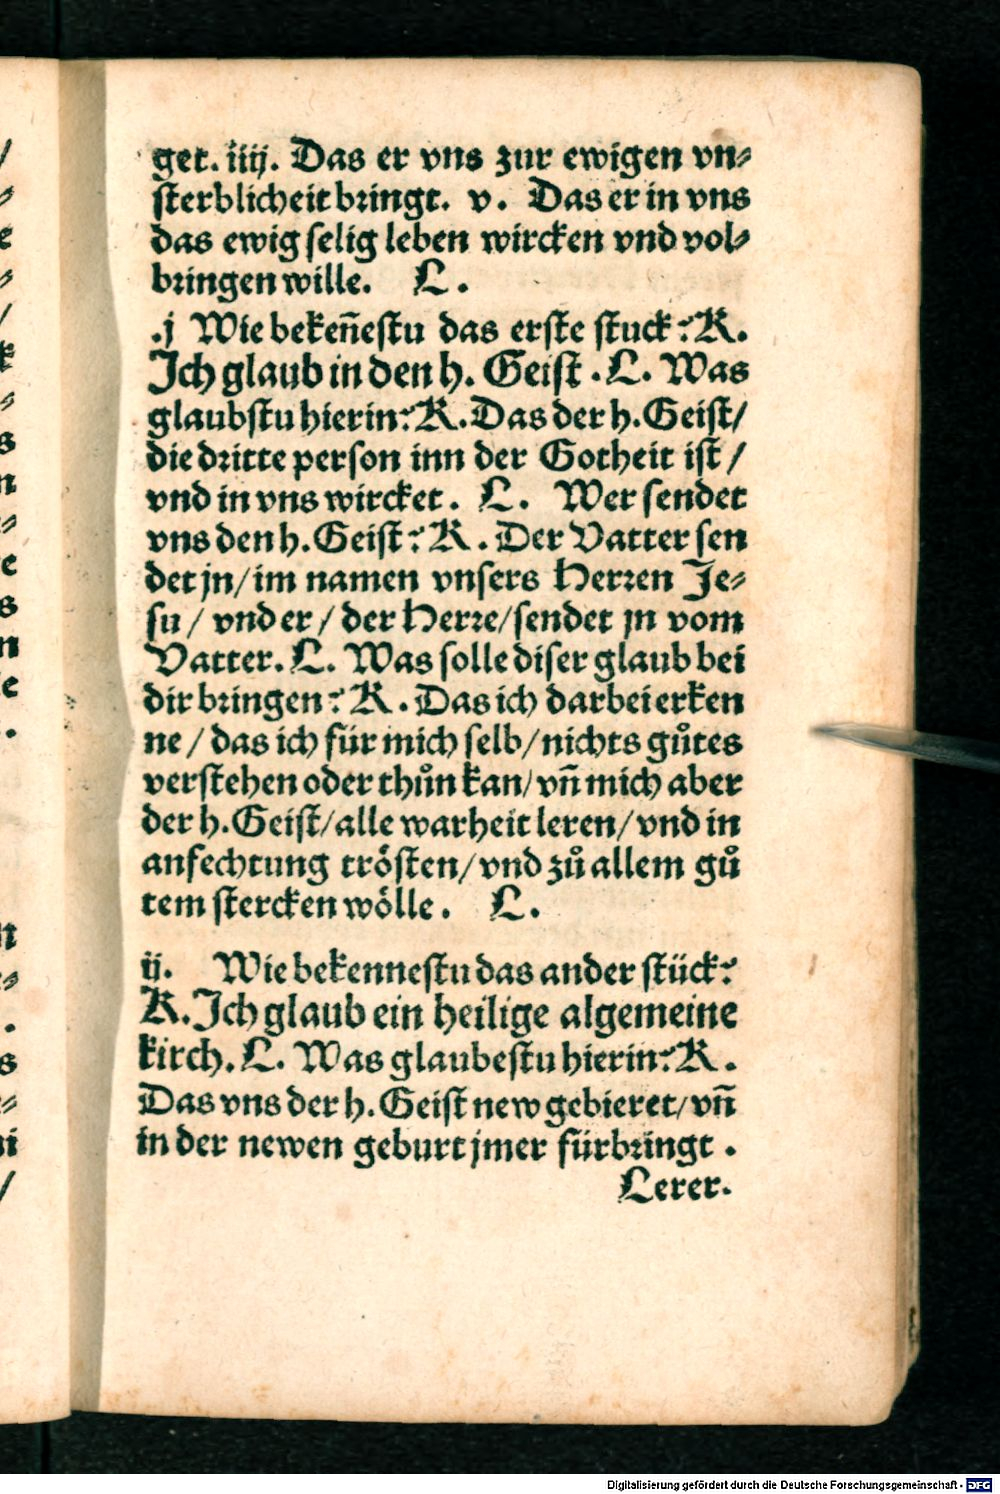 get. iiij. Das er vns zur ewigen vn⸗
sterblicheit bringt. v. Das er in vns
das ewig selig leben wircken vnd vol⸗
bringen wille. L.
.j Wie bekeñestu das erste stuck? K.
Ich glaub in den h. Geist . L. Was
glaubstu hierin? K. Das der h. Geist/
die dritte person inn der Gotheit ist /
vnd in vns wircket. L. Wer sendet
vns den h. Geist? K. Der Vatter sen
det jn/ im namen vnsers Herren Je⸗
su / vnd er / der Herre/ sendet jn vom
Vatter. L. Was solle diser glaub bei
dir bringen? K. Das ich darbei erken
ne / das ich für mich selb/ nichts gůtes
verstehen oder thůn kan/ vñ mich aber
der h. Geist/ alle warheit leren/ vnd in
anfechtung trösten/ vnd zů allem gů
tem stercken wölle. L.
ij. Wie bekennestu das ander stück?
K. Ich glaub ein heilige algemeine
kirch. L. Was glaubestu hierin? K.
Das vns der h. Geist new gebieret/ vñ
in der newen geburt jmer fürbringt .
Lerer.
Digitalisierung gefördert durch die Deutsche Forschungsgemeinschaft - DFG